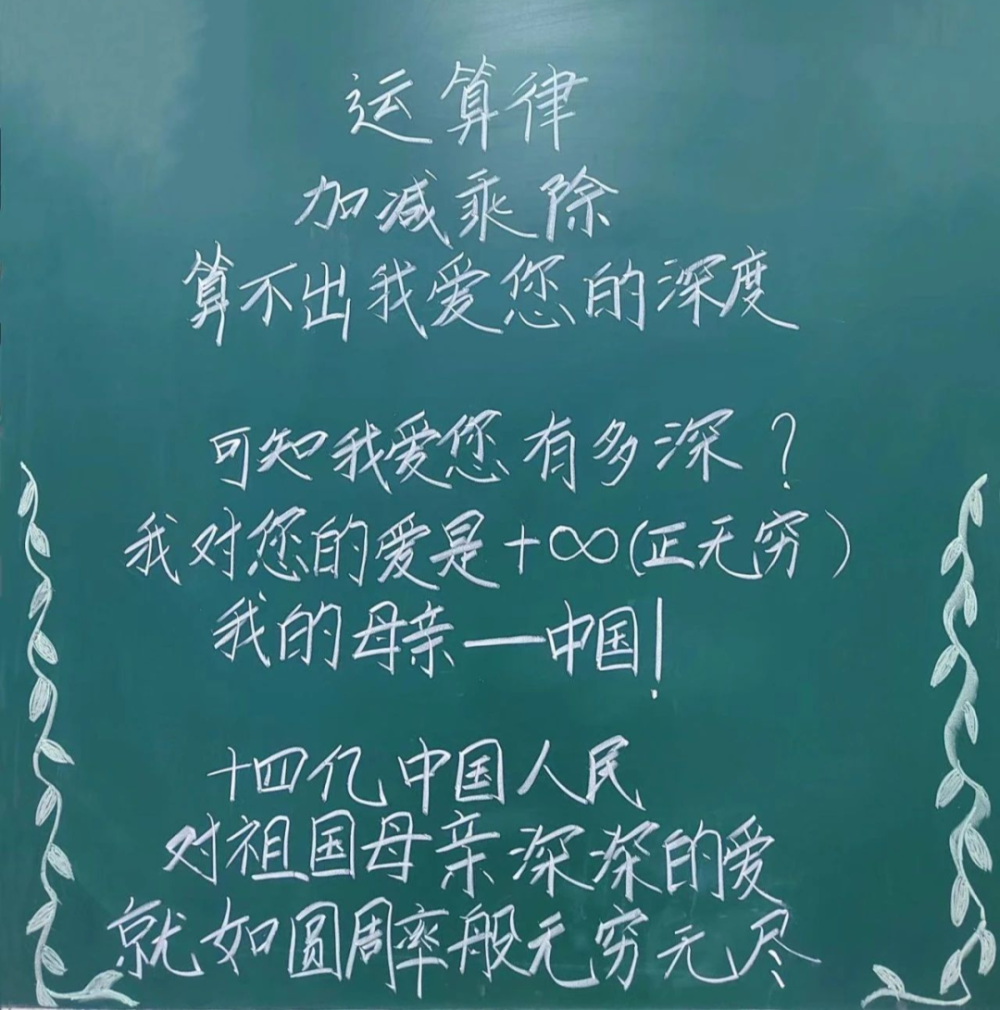 运算律
加减乘除
算不出我爱您的深度
可知我爱您有多深？
我对您的爱是+∞(正无穷)
我的母亲—中国！
十四亿中国人民
对祖国母亲深深的爱
就如圆周率般无穷无尽